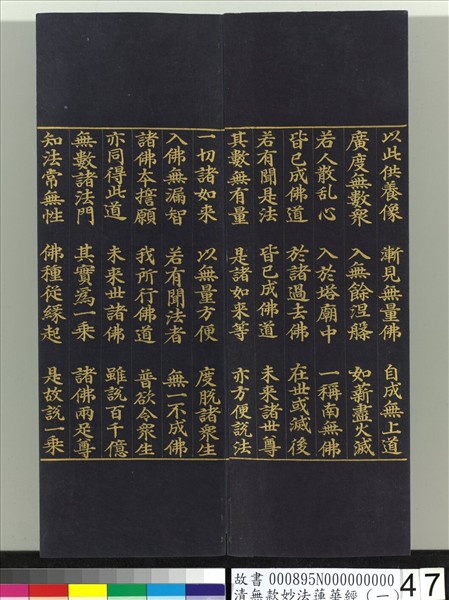 以此供養像　漸見無量佛　自成無上道
廣度無數衆　入無餘涅槃　如薪盡火滅
若人散乱心　入於塔廟中　一稱南無佛
皆已成佛道　於諸過去佛　在世或滅後
若有聞是法　皆已成佛道　未來諸世尊
其數無有量　是諸如來等　亦方便說法
一切諸如來　以無量方便　度脫諸衆生
入佛無漏智　若有聞法者　無一不成佛
諸佛本誓願　我所行佛道　普欲令衆生
亦同得此道　未來世諸佛　雖說百千億
無數諸法門　其實為一乗　諸佛兩足尊
知法常無性　佛種從緣起　是故說一乗
故書 000895N000000000
清無款妙法蓮華經（一）
47